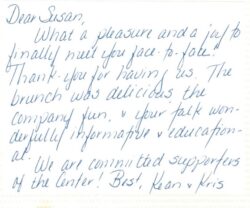 Dear Susan,
What a pleasure and a joy to
finally meet you face-to-face!
Thank you for having us. The
brunch was delicious the
company fun. & your talk won-
derfully informative & education-
al.
We are committed supporters
of the Center! Best, Kean & Kris